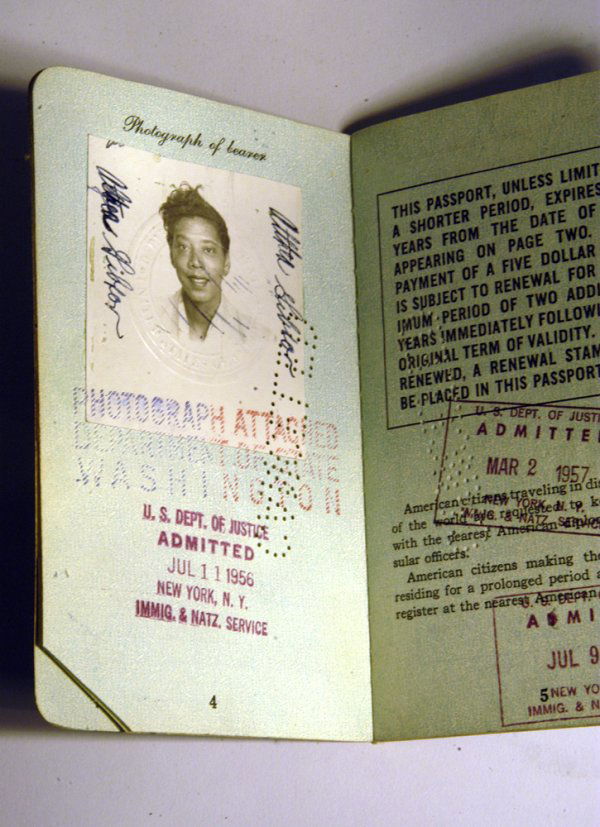 Photograph of bearer
Althea Gibson
Althea Gibson
PHOTOGRAPH ATTACHED
DEPARTMENT OF STATE
WASHINGTON
U. S. DEPT. OF JUSTICE
ADMITTED
JUL 11 1956
NEW YORK, N. Y.
IMMIG. & NATZ. SERVICE
4
THIS PASSPORT, UNLESS LIMIT
A SHORTER PERIOD, EXPIRES
YEARS FROM THE DATE OF
APPEARING ON PAGE TWO.
PAYMENT OF A FIVE DOLLAR
IS SUBJECT TO RENEWAL FOR
IMUM PERIOD OF TWO ADDI
YEARS IMMEDIATELY FOLLOWI
ORIGINAL TERM OF VALIDITY.
RENEWED, A RENEWAL STAM
BE PLACED IN THIS PASSPORT
U. S. DEPT. OF JUSTI
ADMITTE
MAR 2 1957
NEW YORK, N. Y.
IMMIG. & NATZ. SERVICE
American citizens traveling in dis
of the world are requested to k
with the nearest American
sular officers.
American citizens making the
residing for a prolonged period a
register at the nearest American
U. S. DEPT.
ADMI
JUL 9
NEW YO
IMMIG. & N
5